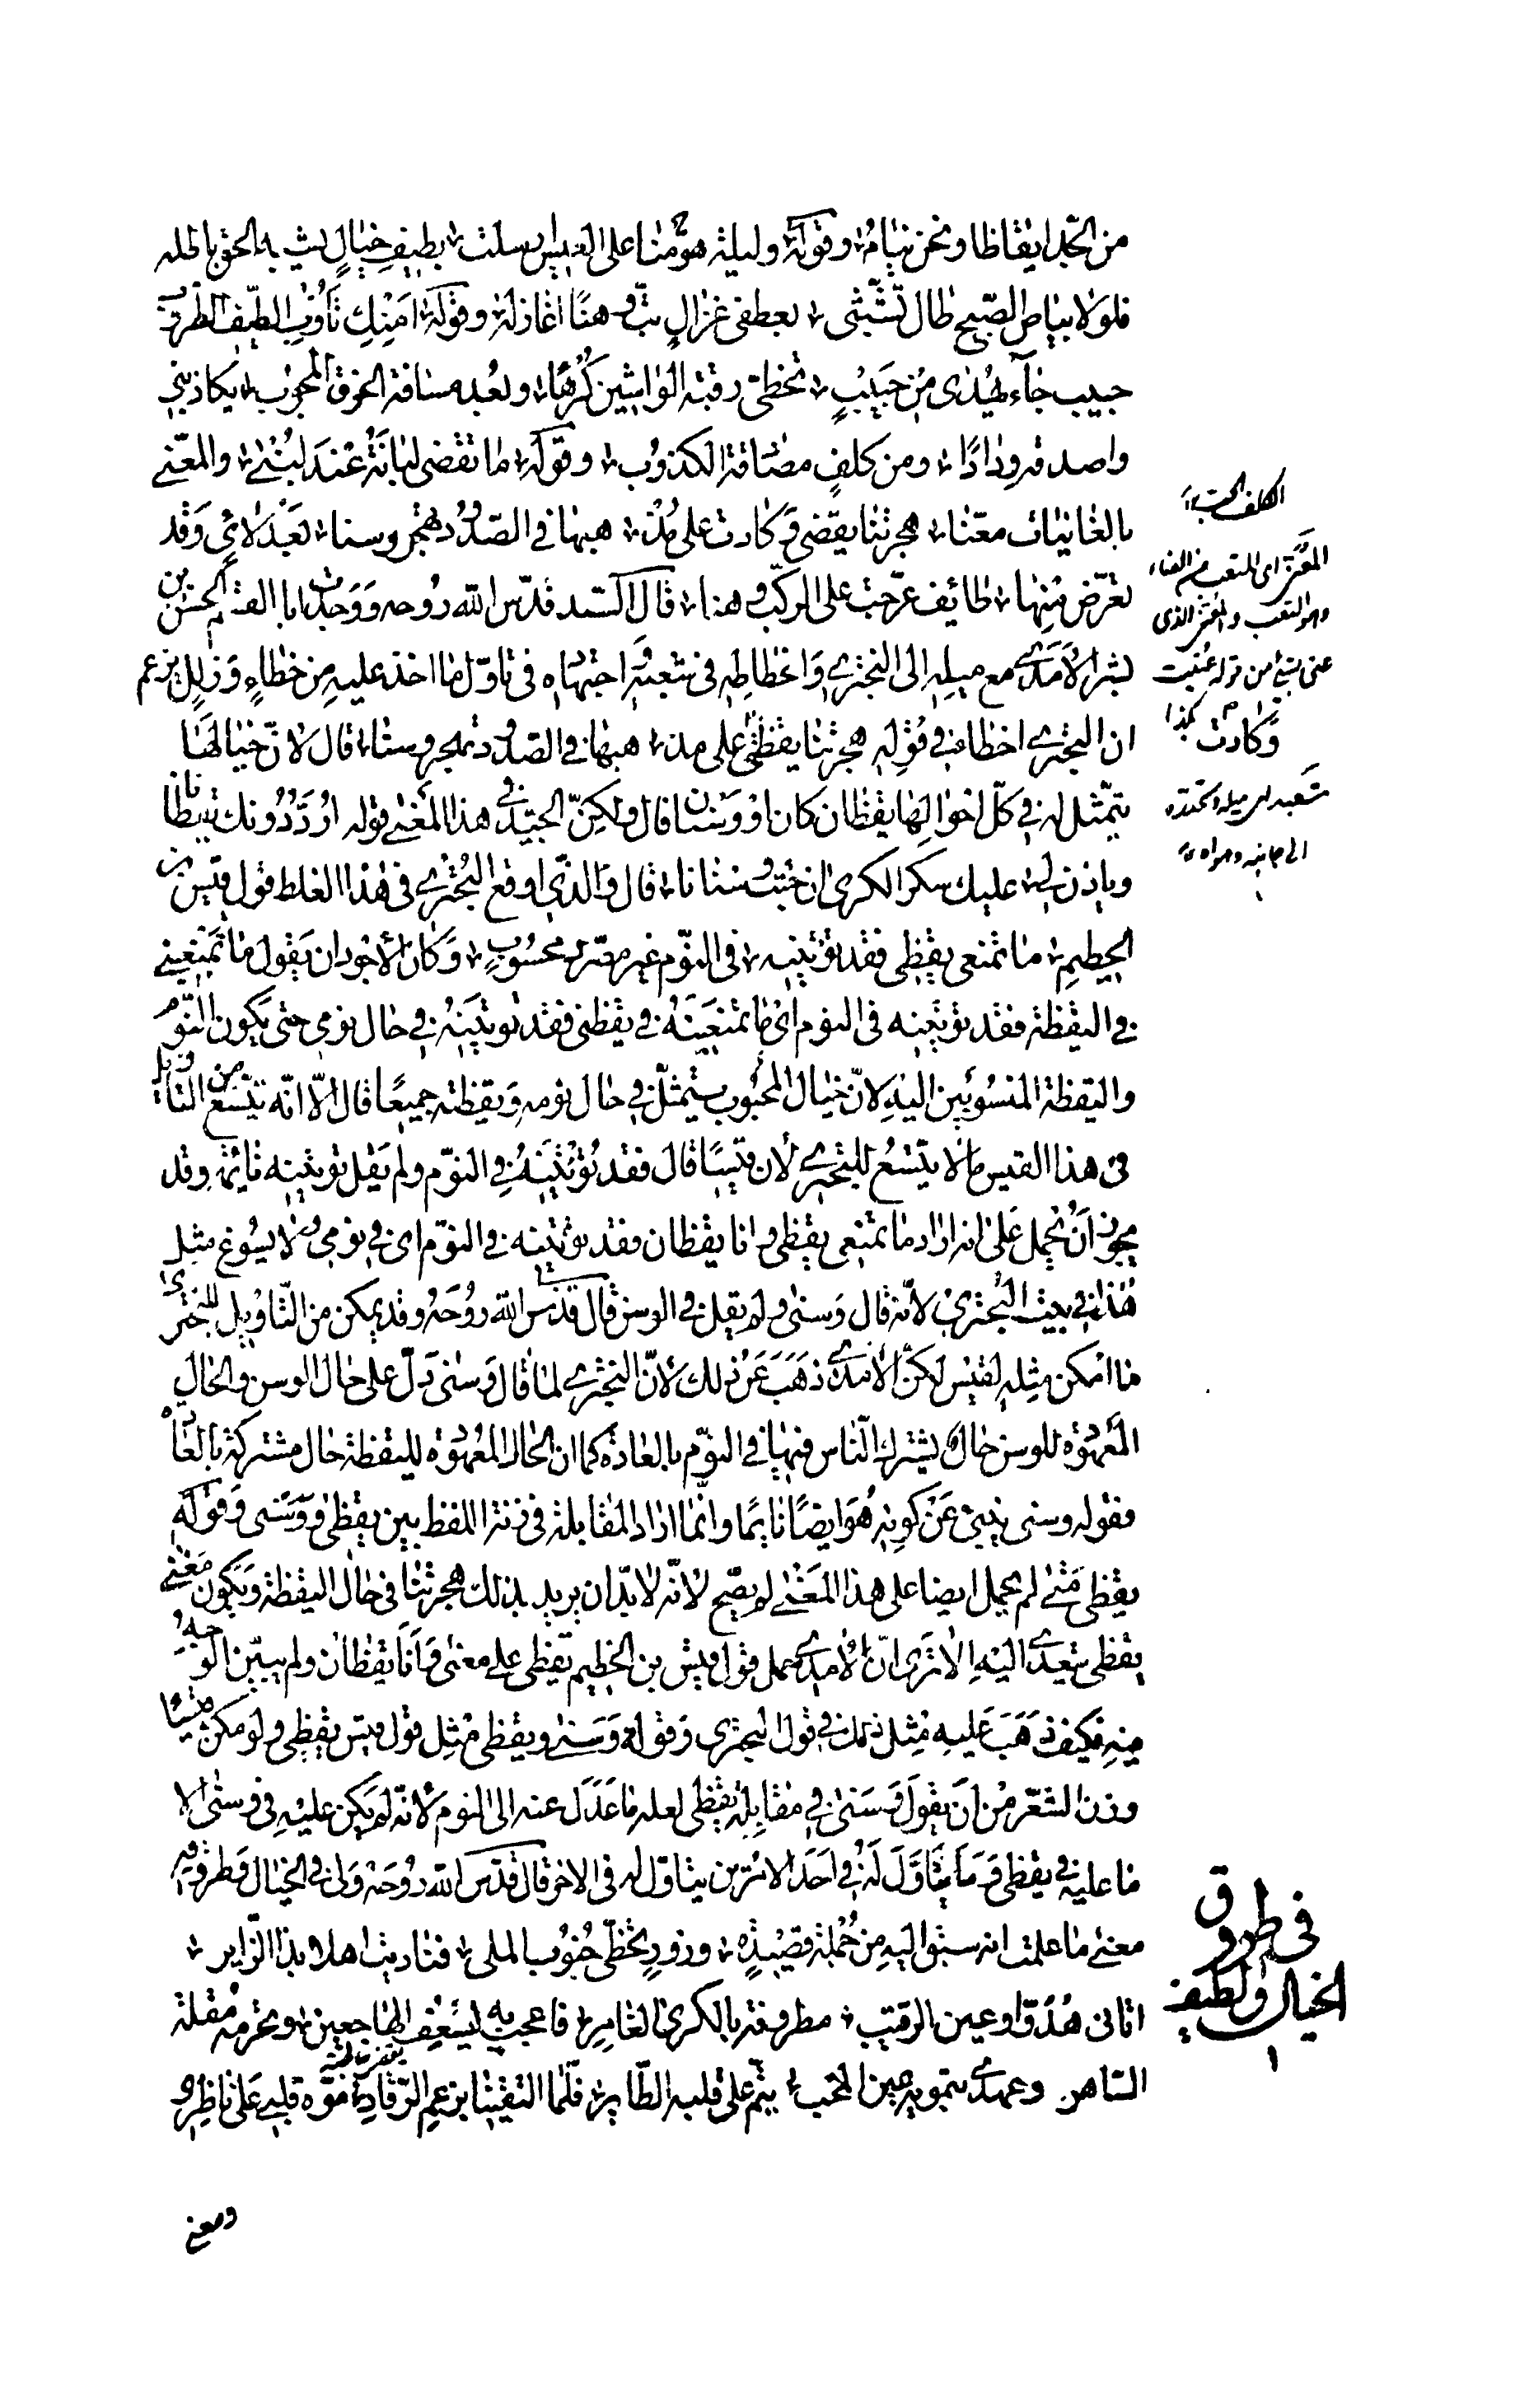 من الجد ايقاظا ونحن نيام وقوله وليلة هومنا على العيس ارسلت بطيف خيال يشبه الحق باطله
فلولا بياض الصبح طال تشبثي بعطفي غزال بت وهنا اغازله وقوله امنك تأوب الطيف الطروب
حبيب جاء يهدى من حبيب تخطى رقبة الواشين كرها وبعد مسافة الخرق المجوب يكاذبني
واصدقه ودادا ومن كلف مصادقة الكذوب وقوله ما تقضى لبانة عند لبنى والمعنى
بالغانيات معنى هجرتنا يقظى وكادت على مذهبها في الصدود تهجر وسنا بعد لاى وقد
تعرض منها طائف عرجت على الركب وهنا قال السيد قدس الله روحه ووجدت ابا القسم الحسن بن
بشر الامدى مع ميله الى البحترى وانحطاطه في شعبه واجتهاده في تاول ما اخذ عليه من خطاء وزلل يزعم
ان البحترى اخطا في قوله هجرتنا يقظى وكادت على مذهبها في الصدود تهجر وسنا قال لان خيالها
يتمثل له في كل احوالها يقظان كان او وسنان قال ولكن الجيد في هذا المعنى قوله اردد دونك يقظانا
وياذن لي عليك سكر الكرى ان جئت وسنانا قال والذي اوقع البحترى في هذا الغلط قول قيس بن
الخطيم ما تمنعى يقظى فقد تؤتينه في النوم غير مصرد محسوب وكان الاجود ان يقول ما تمنعيني
في اليقظة فقد تؤتينه في النوم اي ما تمنعينه في يقظتي فقد تؤتينه في حال نومي حتى يكون النوم
واليقظة المنسوبين اليه لان خيال المحبوب يتمثل في حال نومه ويقظته جميعا قال الا انه يتسع من التاويل
في هذا القيس ما لا يتسع للبحترى لان قيسا قال فقد تؤتينه في النوم ولم يقل تؤتينه نائمة وقد
يجوز ان يحمل على انه اراد ما تمنعى يقظى وانا يقظان فقد تؤتينه في النوم اي في نومي ولا يسوغ مثل
هذا في بيت البحترى لانه قال وسنى ولم يقل في الوسن قال قدس الله روحه وقد يمكن من التاويل للبحترى
ما امكن مثله لقيس لكن الامدى ذهب عن ذلك لان البحترى لما قال وسنى دل على حال الوسن والحال
المعهودة للوسن حال يشترك الناس فيها في النوم بالعادة كما ان الحال المعهودة لليقظة حال مشتركة بالعادة
فقوله وسنى ينبئ عن كونه هو ايضا نايما وانما اراد المقابلة في زنة اللفظ بين يقظى ووسنى وقوله
يقظى متى لم يحمل ايضا على هذا المعنى لم يصح لانه لا بد ان يريد بذلك هجرتنا في حال اليقظة ويكون معنى
يقظى يتعدى اليه الا ترى ان الامدى حمل قول قيس بن الخطيم يقظى على معنى وانا يقظان ولم يبين الوجه
فيه فكيف ذهب عليه مثل ذلك في قول البحترى وقوله وسنى ويقظى مثل قول قيس يقظى ولو مكن قيسا
وزن الشعر من ان يقول وسنى في مقابلة يقظى لعله ما عدل عنه الى النوم لانه لم يكن عليه في وسنى الا
ما عليه في يقظى وما يتاول له في احد الامرين يتاول له في الاخر قال قدس الله روحه ولى في الخيال وطروقه
معنى ما علمت انه سبق اليه من جملة قصيدة وزور تخطى جنوب الملى فناديت اهلا بذا الزاير
اتانى هدوا وعين الرقيب مطروفة بالكرى الغامر فاعجب به يسعف الهاجعين وتحرمه مقلة
الساهر وعهدى بتمويه عين المحب ينم على قلبه الطاير فلما التقينا بزعم الرقاد موه قلبي على ناظرى
الكلف الحب
المعنى اى المتعب من العناء
وهو التعب والذى
عنى بشئ من قوله عنيت
بكذا
وكادت
شعبه اى ميله
الى جانبه وهواه
في طروق
الخيال والطيف
ومعنى